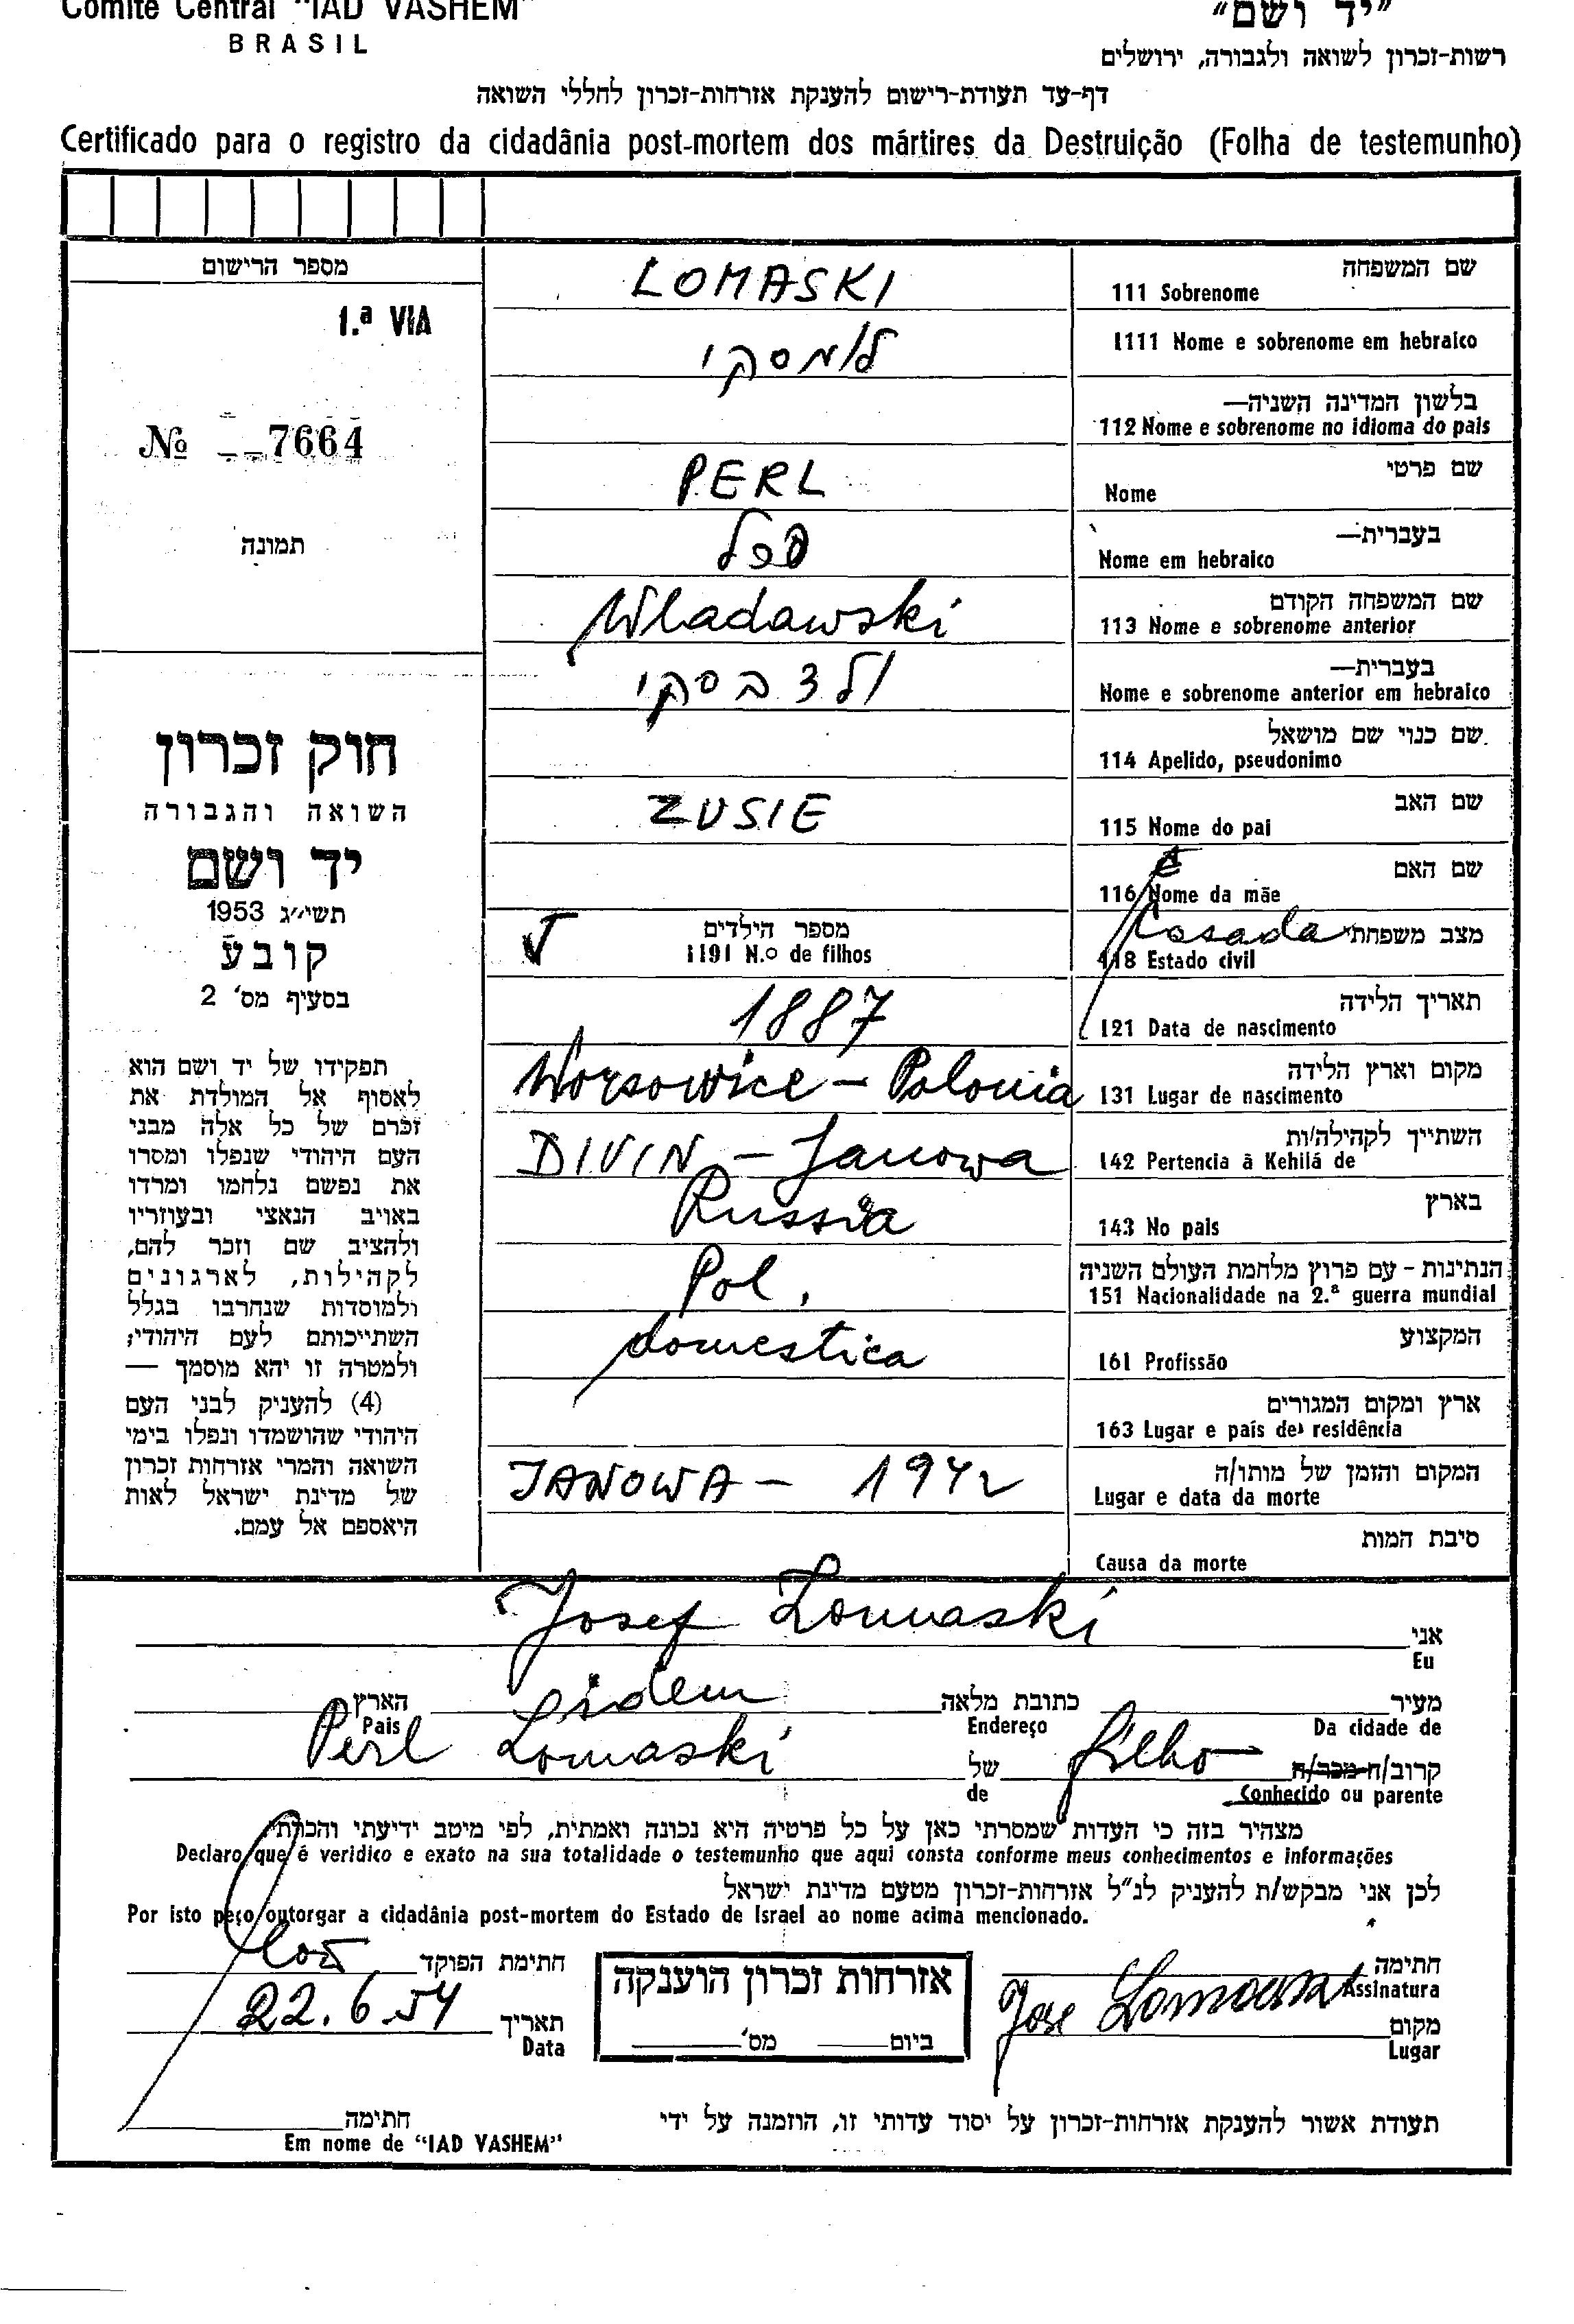 Comite Central "IAD VASHEM"
BRASIL
"יד ושם"
רשות-זכרון לשואה ולגבורה, ירושלים
דף-עד תעודת-רישום להענקת אזרחות-זכרון לחללי השואה
Certificado para o registro da cidadânia post-mortem dos mártires da Destruição (Folha de testemunho)
מספר הרישום
1.ª VIA
№ 7664
תמונה
חוק זכרון
השואה והגבורה
יד ושם
תשי״ג 1953
קובע
בסעיף מס' 2
תפקידו של יד ושם הוא
לאסוף אל המולדת את
זכרם של כל אלה מבני
העם היהודי שנפלו ומסרו
את נפשם נלחמו ומרדו
באויב הנאצי ובעוזריו
ולהציב שם וזכר להם,
לקהילות, לארגונים
ולמוסדות שנחרבו בגלל
השתייכותם לעם היהודי;
ולמטרה זו יהא מוסמך —
(4) להעניק לבני העם
היהודי שהושמדו ונפלו בימי
השואה והמרי אזרחות זכרון
של מדינת ישראל לאות
היאספם אל עמם.
שם המשפחה
111 Sobrenome LOMASKI
1111 Nome e sobrenome em hebraico לומסקי
בלשון המדינה השניה—
112 Nome e sobrenome no idioma do pais
שם פרטי
Nome PERL
בעברית—
Nome em hebraico פרל
שם המשפחה הקודם
113 Nome e sobrenome anterior Wladawski
בעברית—
Nome e sobrenome anterior em hebraico ולדבסקי
שם כנוי שם מושאל
114 Apelido, pseudonimo
שם האב
115 Nome do pai ZUSIE
שם האם
116 Nome da mãe
מצב משפחתי
118 Estado civil Casada
מספר הילדים
1191 N.º de filhos 5
תאריך הלידה
121 Data de nascimento 1887
מקום וארץ הלידה
131 Lugar de nascimento Worsowice - Polonia
השתייך לקהילה/ות
142 Pertencia à Kehilá de DIVIN - Janowa
בארץ
143 No pais Russia
הנתינות - עם פרוץ מלחמת העולם השניה
151 Nacionalidade na 2.ª guerra mundial Pol.
המקצוע
161 Profissão domestica
ארץ ומקום המגורים
163 Lugar e país de residência
המקום והזמן של מותו/ה
Lugar e data da morte JANOWA - 1942
סיבת המות
Causa da morte
אני
Eu Josef Lomaski
מעיר כתובת מלאה הארץ
Da cidade de Endereço idem Pais
קרוב/ה מכר/ה filho של Perl Lomaski
Conhecido ou parente de
מצהיר בזה כי העדות שמסרתי כאן על כל פרטיה היא נכונה ואמתית, לפי מיטב ידיעתי והכרתי
Declaro que é veridico e exato na sua totalidade o testemunho que aqui consta conforme meus conhecimentos e informações
לכן אני מבקש/ת להעניק לנ"ל אזרחות-זכרון מטעם מדינת ישראל
Por isto peço outorgar a cidadânia post-mortem do Estado de Israel ao nome acima mencionado.
חתימה
Assinatura
מקום
Lugar
אזרחות זכרון הוענקה
ביום מס'
חתימת הפוקד
תאריך
Data 22.6.54
תעודת אשור להענקת אזרחות-זכרון על יסוד עדותי זו, הוזמנה על ידי
חתימה
Em nome de "IAD VASHEM"